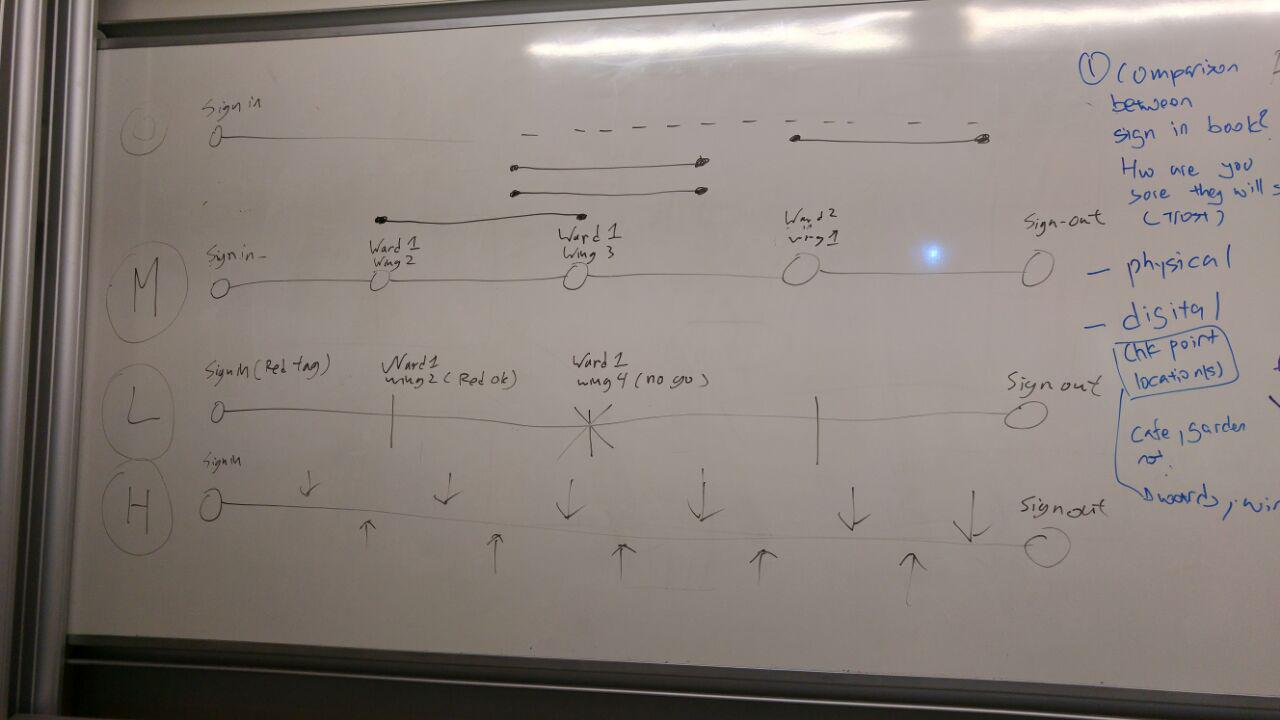 O
Sign in
M
Sign in
Ward 1
wing 2
Ward 1
wing 3
Ward 2
in
wing 1
Sign-out
L
Sign In (Red tag)
Ward 1
wing 2 (Red ok)
Ward 1
wing 4 (no go)
Sign out
H
Sign In
Sign out
① Comparison
between
sign in book?
Hw are you
sore they will
- physical
- digital
Chk point
location(s)
Cafe, garden
not
wards,